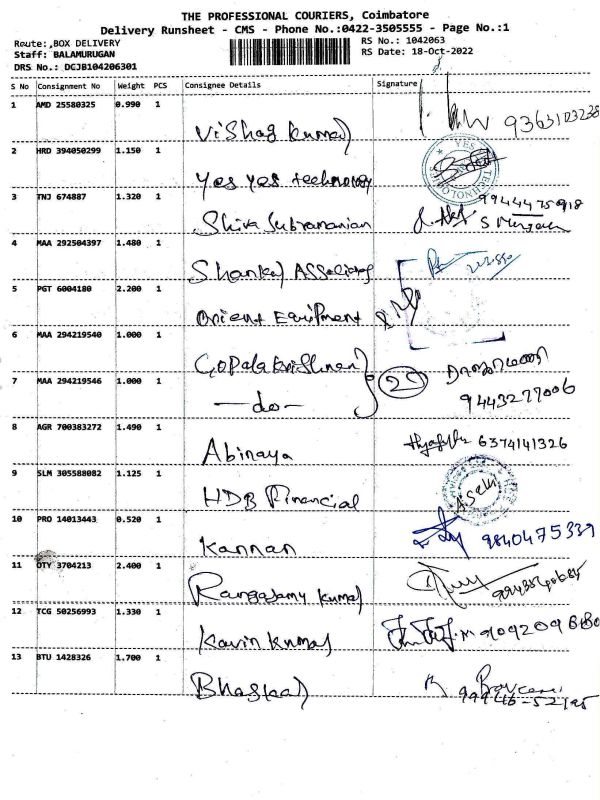 THE PROFESSIONAL COURIERS, Coimbatore
Delivery Runsheet - CMS - Phone No.:0422-3505555 - Page No.:1
Route:,BOX DELIVERY
RS No.: 1042063
Staff: BALAMURUGAN
RS Date: 18-Oct-2022
DRS No.: DCJB104206301
S No Consignment No Weight PCS Consignee Details Signature
1 AMD 25580325 0.990 1
Vishag Kumar 9363103238
2 HRD 394050299 1.150 1
Yes Yes technology
3 TNJ 674887 1.320 1
Shiva Subramanian
4 MAA 292504397 1.480 1
Shankar Associates
5 PGT 6004180 2.200 1
Orient Equipment
6 MAA 294219540 1.000 1
Gopala Krishnan
7 MAA 294219546 1.000 1
-do- 9443277006
8 AGR 700383272 1.490 1
Abinaya 6374141326
9 SLM 305588082 1.125 1
HDB Financial
10 PRO 14013443 0.520 1
Kannan 9840475339
11 OTY 3704213 2.400 1
Rangasamy Kumar
12 TCG 50256993 1.330 1
Kavin Kumar
13 BTU 1428326 1.700 1
Bhaskar